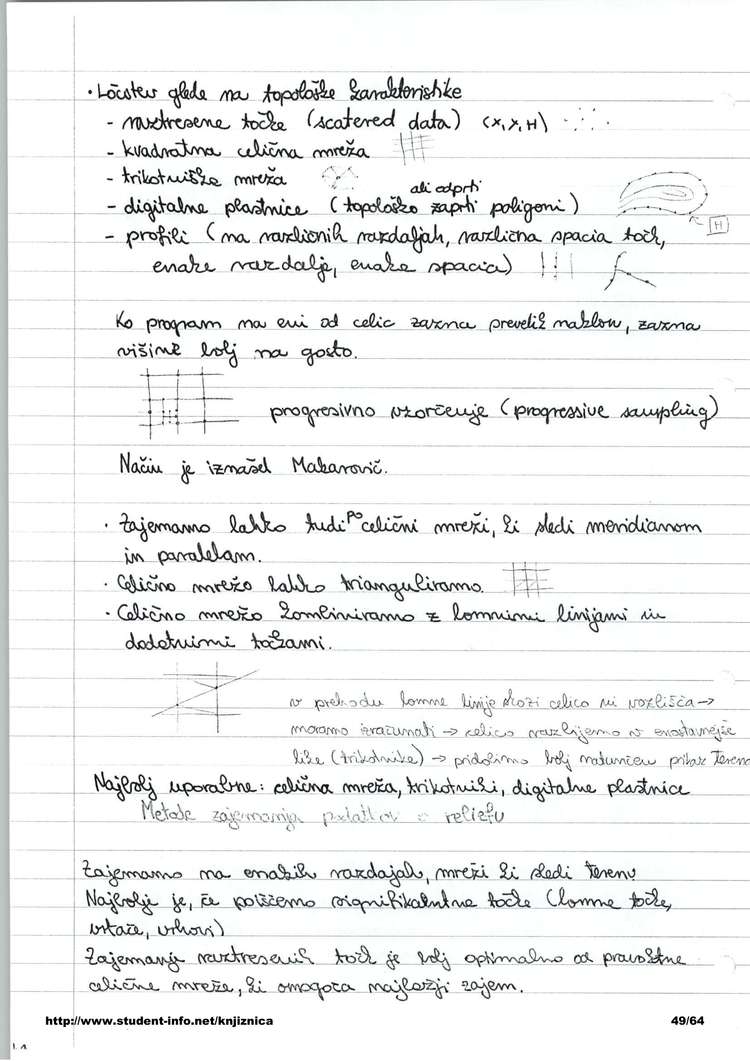 · Ločitev glede na topološke karakteristike
- raztresene točke (scatered data) (X,Y,H)
- kvadratna celična mreža
- trikotniška mreža
ali odprti
- digitalne plastnice (topološko zaprti poligoni)
H
- profili (na različnih razdaljah, različna spacia točk,
enake razdalje, enaka spacia)
Ko program na eni od celic zazna prevelik naklon, zazna
višine bolj na gosto.
progresivno vzorčenje (progressive sampling)
Način je iznašel Makarovič.
· Zajemamo lahko tudi po celični mreži, ki sledi meridianom
in paralelam.
· Celično mrežo lahko trianguliramo.
· Celično mrežo kombiniramo z lomnimi linijami in
dodatnimi točkami.
v prehodu lomne linije skozi celico ni vozlišča →
moramo izračunati → celico razbijemo v enostavnejše
like (trikotnike) → pridobimo bolj natančen prikaz terena
Najbolj uporabne: celična mreža, trikotniki, digitalne plastnice
Metode zajemanja podatkov o reliefu
Zajemamo na enakih razdaljah, mreži ki sledi terenu
Najbolje je, če poiščemo signifikantne točke (lomne točke,
vrtače, vrhovi)
Zajemanje raztresenih točk je bolj optimalno od pravokotne
celične mreže, ki omogoča najlažji zajem.
http://www.student-info.net/knjiznica 49/64